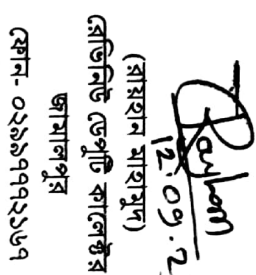 Rayhan
12.09.2
(রায়হান মাহমুদ)
রেভিনিউ ডেপুটি কালেক্টর
জামালপুর
ফোন- ০২৯৯৭৭৭২১৬৭